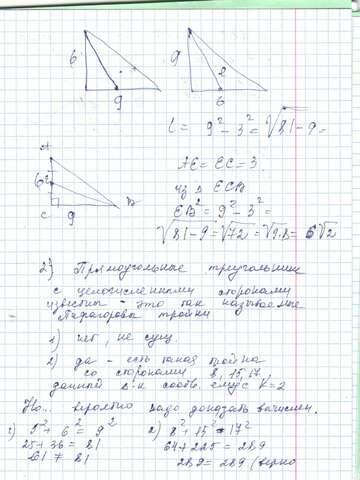 6
9
9
2
6
L = 9² - 3² = √81-9 =
A
6
2
C
9
B
AE = EC = 3.
из Δ ECB
EB² = 9² - 3² =
√81-9 = √72 = √9·8 = 6√2
2) Прямоугольные треугольники
с целочисленными сторонами
известны - это так называемые
Пифагоровы тройки
1) нет, не сущ.
2) да - есть такая тройка
со сторонами 8, 15, 17,
данный
соотв.
K = 2
Но... вероятно надо доказать вычислен.
1) 5² + 6² = 9²
2) 8² + 15² = 17²
25 + 36 = 81
64 + 225 = 289
61 ≠ 81
289 = 289 (верно